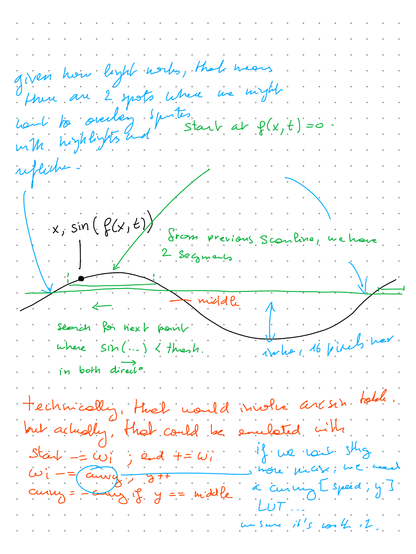 given how light works, that means
there are 2 spots where we might
want to overlay sprites
with highlights and
start at f(x,t)=0
x, sin(f(x,t))
from previous scanline, we have
2 segments
middle
search for next point
where sin(...) < thresh.
in both direct°
16 pixels max
technically, that would involve arcsin table.
but actually, that could be emulated with
start -= wi ; end += wi
wi -= curvy ; y++
curvy = -curvy if y == middle
if we want sthg
more precise, we need
a curving [speed; y]
LUT...